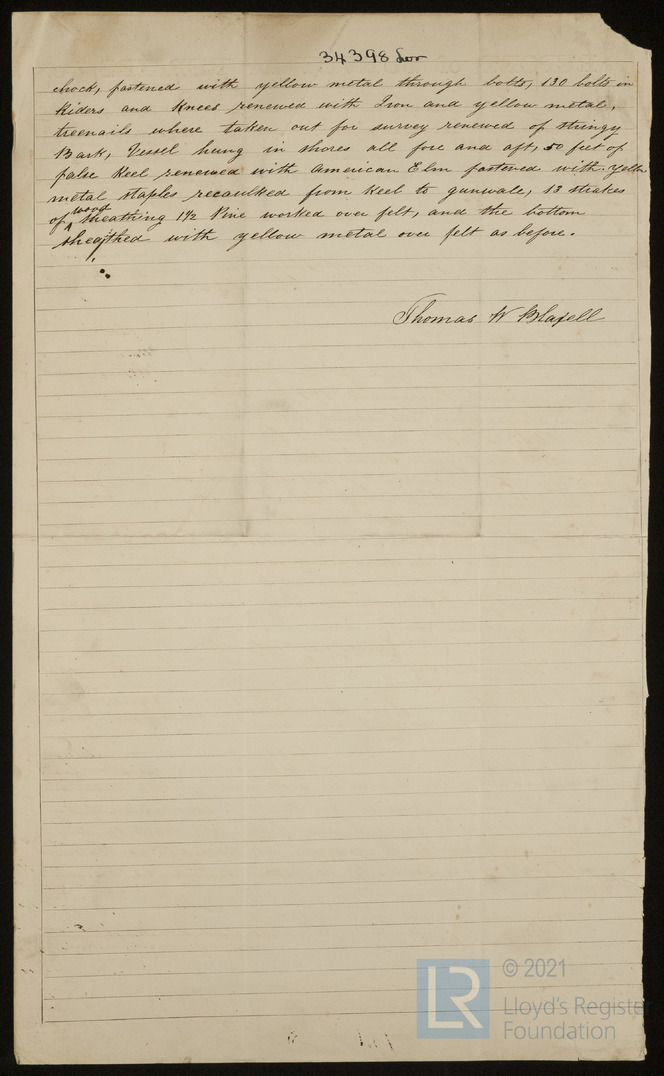 34398 Lon
chock, fastened with yellow metal through bolts, 130 bolts in
Riders and Knees renewed with Iron and yellow metal,
treenails where taken out for survey renewed of stringy
Bark, Vessel hung in shores all fore and aft, 50 feet of
false Keel renewed with American Elm fastened with yellow
metal staples recaulked from Keel to gunwale, 13 strakes
of wood sheathing 1½ Pine worked over felt, and the bottom
sheathed with yellow metal over felt as before.
Thomas W Blaxell
© 2021
LR
Lloyd's Register
Foundation